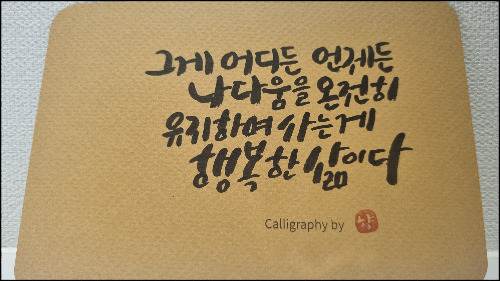 그게 어디든 언제든
나다움을 온전히
유지하며 사는게
행복한 삶이다
Calligraphy by